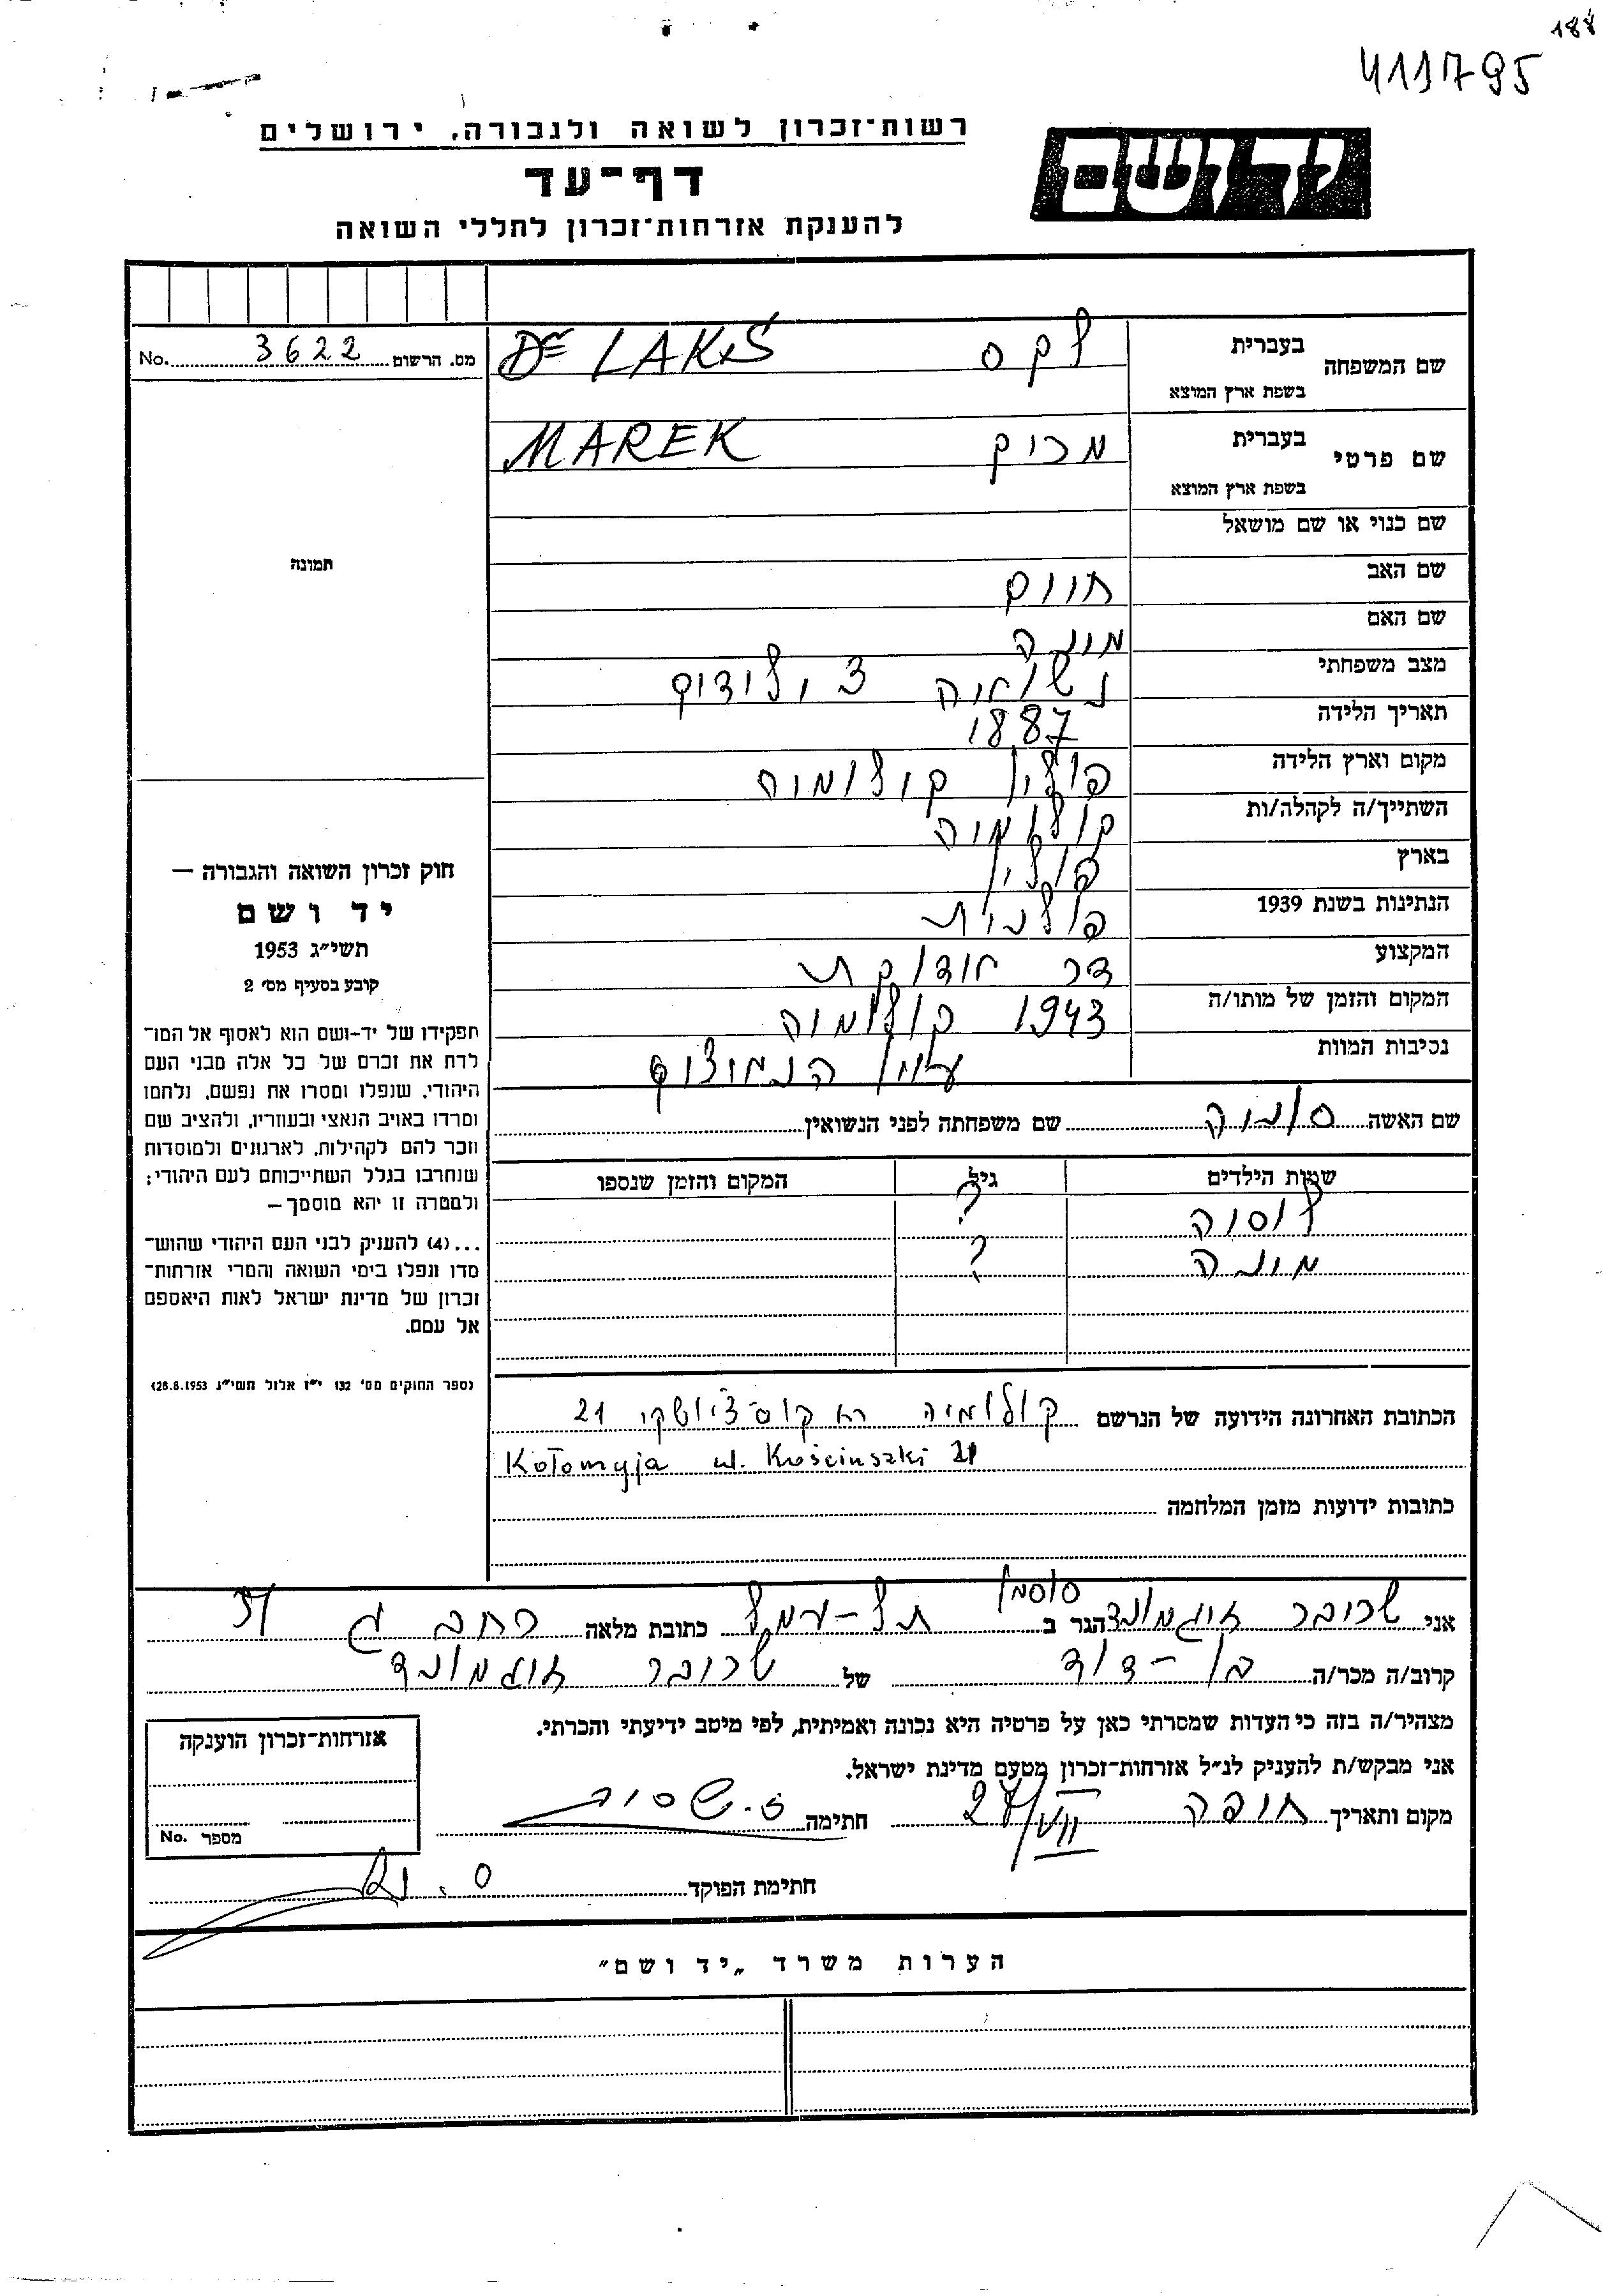 188
411795
רשות־זכרון לשואה ולגבורה, ירושלים
יד ושם
דף־עד
להענקת אזרחות־זכרון לחללי השואה
מס. הרשום 3622 No.
שם המשפחה בעברית לקס Dr LAKS
בשפת ארץ המוצא
שם פרטי בעברית MAREK
בשפת ארץ המוצא
שם כנוי או שם מושאל
שם האב חיים
שם האם מינה
מצב משפחתי
תאריך הלידה 1887
מקום וארץ הלידה פולין קולומיה
השתייך/ה לקהלה/ות קולומיה
בארץ פולין
הנתינות בשנת 1939 פולנית
המקצוע דר
המקום והזמן של מותו/ה 1943 קולומיה
נסיבות המוות
תמונה
חוק זכרון השואה והגבורה —
יד ושם
תשי״ג 1953
קובע בסעיף מס׳ 2
תפקידו של יד-ושם הוא לאסוף אל המו־
לדת את זכרם של כל אלה מבני העם
היהודי, שנפלו ומסרו את נפשם, נלחמו
ומרדו באויב הנאצי ובעוזריו, ולהציב שם
וזכר להם לקהילות, לארגונים ולמוסדות
שנחרבו בגלל השתייכותם לעם היהודי;
ולמטרה זו יהא מוסמך —
...(4) להעניק לבני העם היהודי שהוש־
מדו ונפלו בימי השואה והמרי אזרחות־
זכרון של מדינת ישראל לאות היאספם
אל עמם.
(ספר החוקים מס׳ 132 י״ז אלול תשי״ג 28.8.1953)
שם האשה שם משפחתה לפני הנשואין
שמות הילדים גיל המקום והזמן שנספו
לוסיה ?
מינה ?
הכתובת האחרונה הידועה של הנרשם קולומיה רח קוסצ׳יושקי 21
Kołomyja ul. Kościuszki 21
כתובות ידועות מזמן המלחמה
אני שרובר זיגמונד הגר ב תל-עמל כתובת מלאה רחב ג
קרוב/ה מכר/ה בן-דוד של שרובר זיגמונד
מצהיר/ה בזה כי העדות שמסרתי כאן על פרטיה היא נכונה ואמיתית, לפי מיטב ידיעתי והכרתי.
אני מבקש/ת להעניק לנ״ל אזרחות־זכרון מטעם מדינת ישראל.
מקום ותאריך חיפה חתימה
אזרחות־זכרון הוענקה
מספר No.
חתימת הפוקד
הערות משרד „יד ושם״